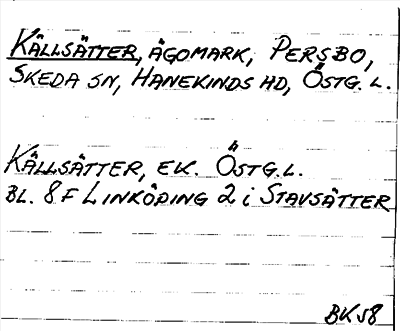 KÄLLSÄTTER, ÄGOMARK, PERSBO,
SKEDA SN, HANEKINDS HD, ÖSTG. L.
KÄLLSÄTTER, EK. ÖSTG. L.
BL. 8 F LINKÖPING 2 i STAVSÄTTER
BK 58